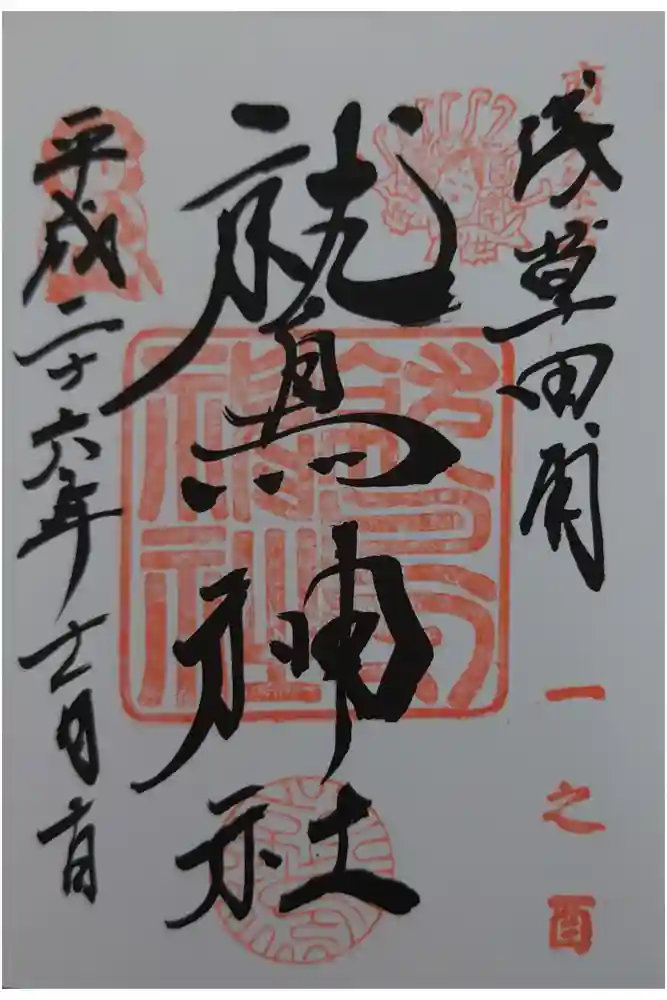 浅草田圃
一之酉
鷲神社
平成二十六年十一月十日